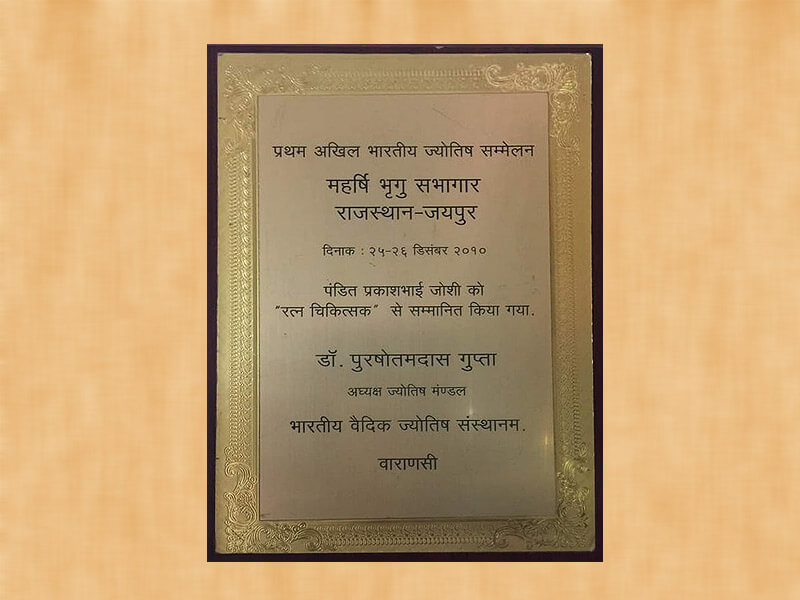 प्रथम अखिल भारतीय ज्योतिष सम्मेलन
महर्षि भृगु सभागार
राजस्थान-जयपुर
दिनाक : २५-२६ डिसंबर २०१०
पंडित प्रकाशभाई जोशी को
"रत्न चिकित्सक" से सम्मानित किया गया.
डॉ. पुरषोतमदास गुप्ता
अघ्यक्ष ज्योतिष मंण्डल
भारतीय वैदिक ज्योतिष संस्थानम.
वाराणसी